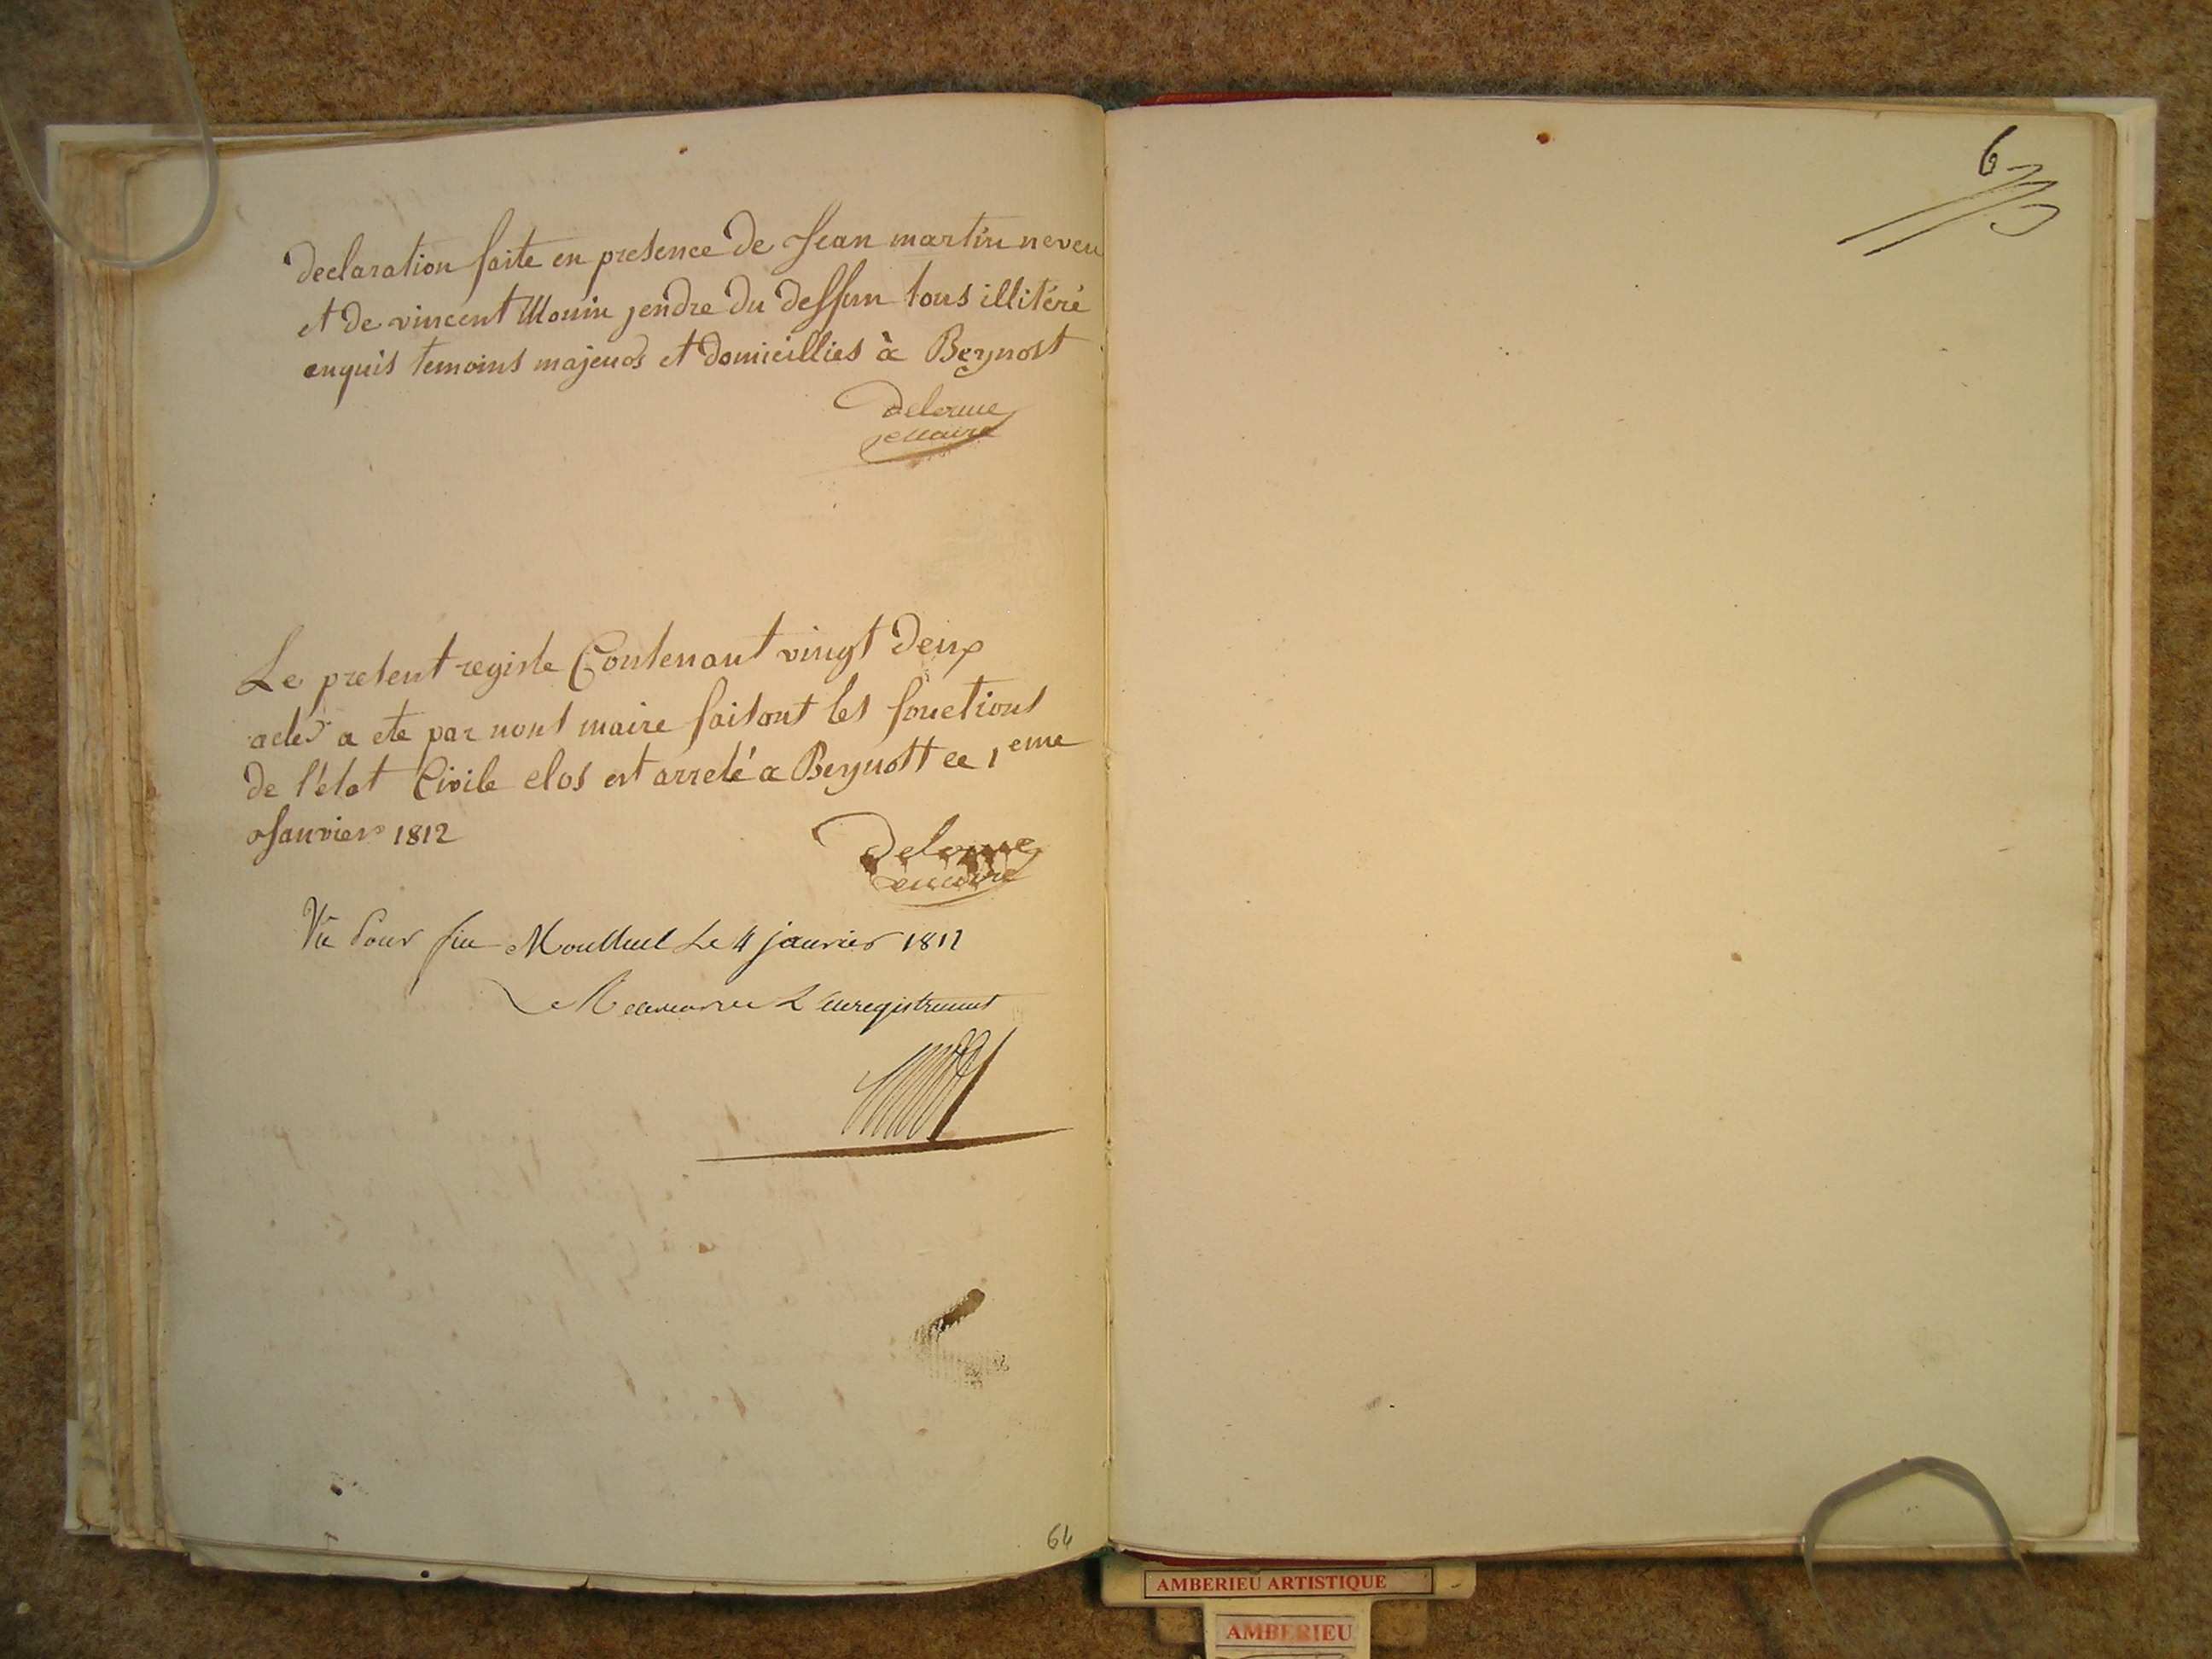 declaration faite en presence de Jean martin neveu
et de vincent Monin jendre du deffun tous illitéré
enquis temoins majeurs et domicillies à Beynost
Delorme
maire
Le present registe Contenant vingt deux
actes a ete par nous maire faisont les fonctions
de l'étot Civile clos est arreté a Beynost ce 1eme
Janvier 1812
Delorme
maire
Vu Pour fin Montluel Le 4 janvier 1812
L'enregistrement
6
64
AMBERIEU ARTISTIQUE
AMBERIEU